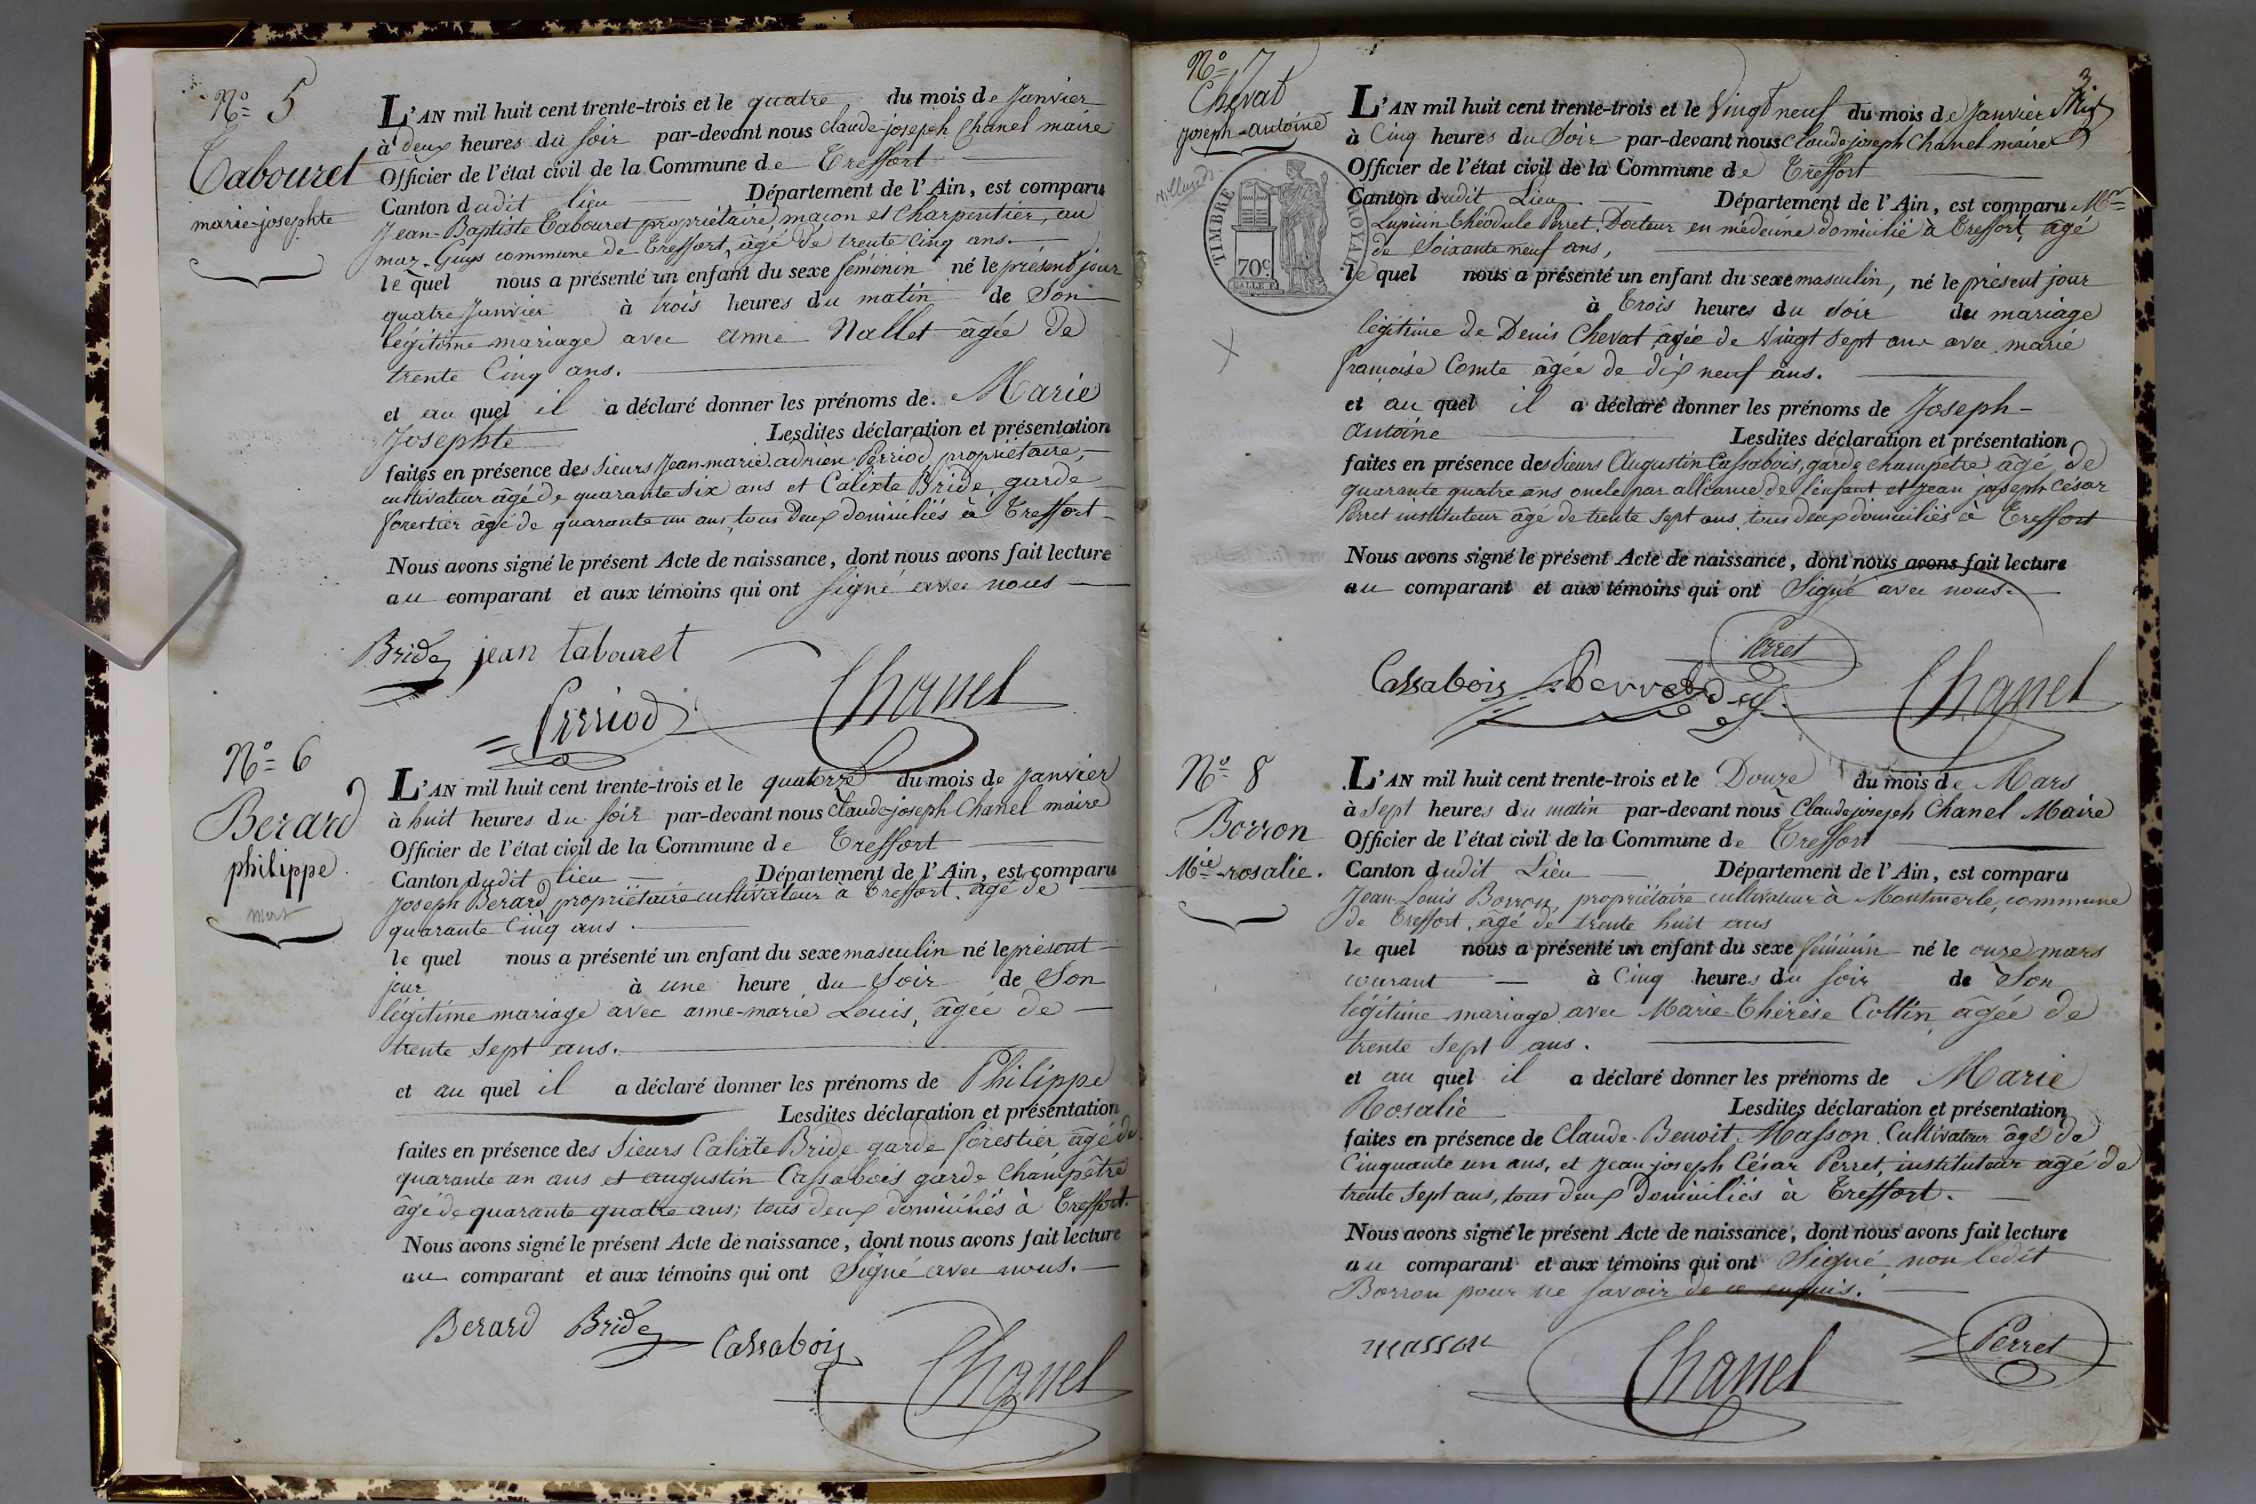 N.° 5
Tabouret
marie-josephte
L'AN mil huit cent trente-trois et le quatre du mois de Janvier
à deux heures du soir par-devant nous Claude-joseph Chanel maire
Officier de l'état civil de la Commune de Treffort
Canton dudit lieu Département de l'Ain, est comparu
Jean-Baptiste Tabouret propriétaire, maçon et charpentier, au
maz-Guys commune de Treffort, âgé de trente cinq ans.
le quel nous a présenté un enfant du sexe féminin né le présent jour
quatre Janvier à trois heures du matin de Son
légitime mariage avec anne Nallet âgée de
trente Cinq ans.
et au quel il a déclaré donner les prénoms de Marie
Josephte Lesdites déclaration et présentation
faites en présence des Sieurs Jean-marie-adrien Perriod propriétaire,
cultivateur âgé de quarante six ans et Calixte Bride, garde
forestier âgé de quarante un ans, tous deux domiciliés à Treffort
Nous avons signé le présent Acte de naissance, dont nous avons fait lecture
au comparant et aux témoins qui ont signé avec nous
Bride jean tabouret
Perriod Chanel
N.° 6
Berard
philippe
mort
L'AN mil huit cent trente-trois et le quatorze du mois de Janvier
à huit heures du soir par-devant nous Claude-joseph Chanel maire
Officier de l'état civil de la Commune de Treffort
Canton dudit lieu Département de l'Ain, est comparu
Joseph Berard propriétaire cultivateur à Treffort, âgé de
quarante Cinq ans.
le quel nous a présenté un enfant du sexe masculin né le présent
jour à une heure du Soir de Son
légitime mariage avec anne-marie Louis, âgée de
trente Sept ans.
et au quel il a déclaré donner les prénoms de Philippe
Lesdites déclaration et présentation
faites en présence des Sieurs Calixte Bride garde forestier âgé de
quarante un ans et augustin Cassabois garde Champêtre
âgé de quarante quatre ans; tous deux domiciliés à Treffort.
Nous avons signé le présent Acte de naissance, dont nous avons fait lecture
au comparant et aux témoins qui ont Signé avec nous.
Berard Bride Cassabois
Chanel
N.° 7
Chevat
Joseph-antoine
TIMBRE ROYAL
70c
3
L'AN mil huit cent trente-trois et le Vingt neuf du mois de Janvier
à Cinq heures du Soir par-devant nous Claude joseph Chanel maire
Officier de l'état civil de la Commune de Treffort
Canton dudit Lieu Département de l'Ain, est comparu Mr
Lupicin Théodule Perret, Docteur en médecine domicilié à Treffort, âgé
de Soixante neuf ans,
le quel nous a présenté un enfant du sexe masculin, né le présent jour
à Trois heures du soir du mariage
légitime de Denis Chevat âgée de Vingt Sept ans avec marie
françoise Comte âgée de dix neuf ans.
et au quel il a déclaré donner les prénoms de Joseph-
antoine Lesdites déclaration et présentation
faites en présence des Sieurs Augustin Cassabois, garde champêtre âgé de
quarante quatre ans oncle par alliance de l'enfant et jean joseph César
Perret instituteur âgé de trente Sept ans, tous deux domiciliés à Treffort
Nous avons signé le présent Acte de naissance, dont nous avons fait lecture
au comparant et aux témoins qui ont Signé avec nous.
Perret
Cassabois Perret Chanel
N.° 8
Borron
Mie-rosalie.
L'AN mil huit cent trente-trois et le Douze du mois de Mars
à Sept heures du matin par-devant nous Claude joseph Chanel Maire
Officier de l'état civil de la Commune de Treffort
Canton dudit Lieu Département de l'Ain, est comparu
Jean-Louis Borron, propriétaire cultivateur à Montmerle, commune
de Treffort, âgé de trente huit ans
le quel nous a présenté un enfant du sexe féminin né le onze mars
courant à Cinq heures du soir de Son
légitime mariage avec Marie-Thérèse Collin âgée de
trente Sept ans.
et au quel il a déclaré donner les prénoms de Marie
Rosalie Lesdites déclaration et présentation
faites en présence de Claude-Benoit Masson Cultivateur âgé de
Cinquante un ans, et Jean joseph César Perret, instituteur âgé de
trente sept ans, tous deux Domiciliés à Treffort.
Nous avons signé le présent Acte de naissance, dont nous avons fait lecture
au comparant et aux témoins qui ont Signé non ledit
Borron pour ne savoir de ce enquis.
masson Chanel Perret